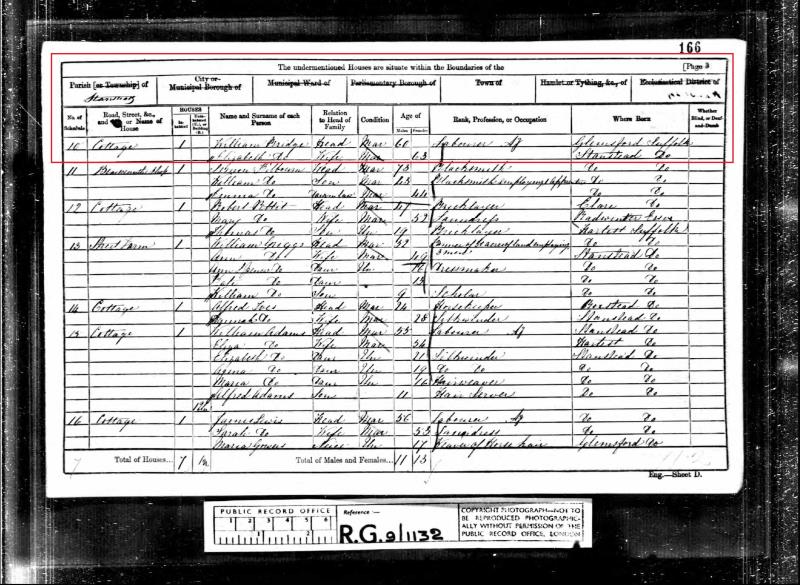 166
The undermentioned Houses are situate within the Boundaries of the [Page 3
Parish [or Township] of City or Municipal Borough of Municipal Ward of Parliamentary Borough of Town of Hamlet or Tything, &c., of Ecclesiastical District of
Stanstead
No. of Schedule Road, Street, &c., and No. or Name of House HOUSES Inhabited Uninhabited (U.), or Building (B.) Name and Surname of each Person Relation to Head of Family Condition Age of Males Females Rank, Profession, or Occupation Where Born Whether Blind, or Deaf-and-Dumb
10 Cottage 1 William Bridge Head Mar 60 Labourer Ag Glemsford Suffolk
Elizabeth Do Wife Mar 63 Stanstead Do
11 1 Head Mar 73 Blacksmith Do Do
William Do Son Mar 43 Blacksmith employing Do Do
Do Mar 44 Do Do
12 Cottage 1 Robert Head Mar Bricklayer Clare Do
Mary Do Wife Mar 52 Laundress Radwinter Essex
Thomas Do Son Un 19 Bricklayer Hartest Suffolk
13 Farm 1 William Griggs Head Mar 52 of land employing Do Do
Ann Do Wife Mar 49 Stanstead Do
Ann Do Daur Un Dressmaker Do Do
Do Daur Do Do
William Do Son 9 Scholar Do Do
14 Cottage 1 Alfred Head Mar 24 Do
Hannah Do Wife Mar 28 Silkwinder Stanstead Do
15 Cottage 1 William Adams Head Mar 55 Labourer Ag Stanstead Do
Eliza Do Wife Mar 54 Hartest Do
Elizabeth Do Daur Un 21 Silkwinder Stanstead Do
Do Daur Un 19 Do Do Do Do
Maria Do Daur Un 16 Hairweaver Do Do
Alfred Adams Son 11 Hair Server Do Do
16 Cottage 1 James Lewis Head Mar 56 Labourer Ag Do Do
Sarah Do Wife Mar 53 Laundress Do Do
Maria Niece Un 17 Weaver of Horse hair Glemsford Do
Total of Houses... 7 Total of Males and Females... 11 13
Eng.—Sheet D.
PUBLIC RECORD OFFICE
1 2 3 4 5 6
Reference :-
R.G. 9/1132
COPYRIGHT PHOTOGRAPH—NOT TO
BE REPRODUCED PHOTOGRAPHIC-
ALLY WITHOUT PERMISSION OF THE
PUBLIC RECORD OFFICE, LONDON